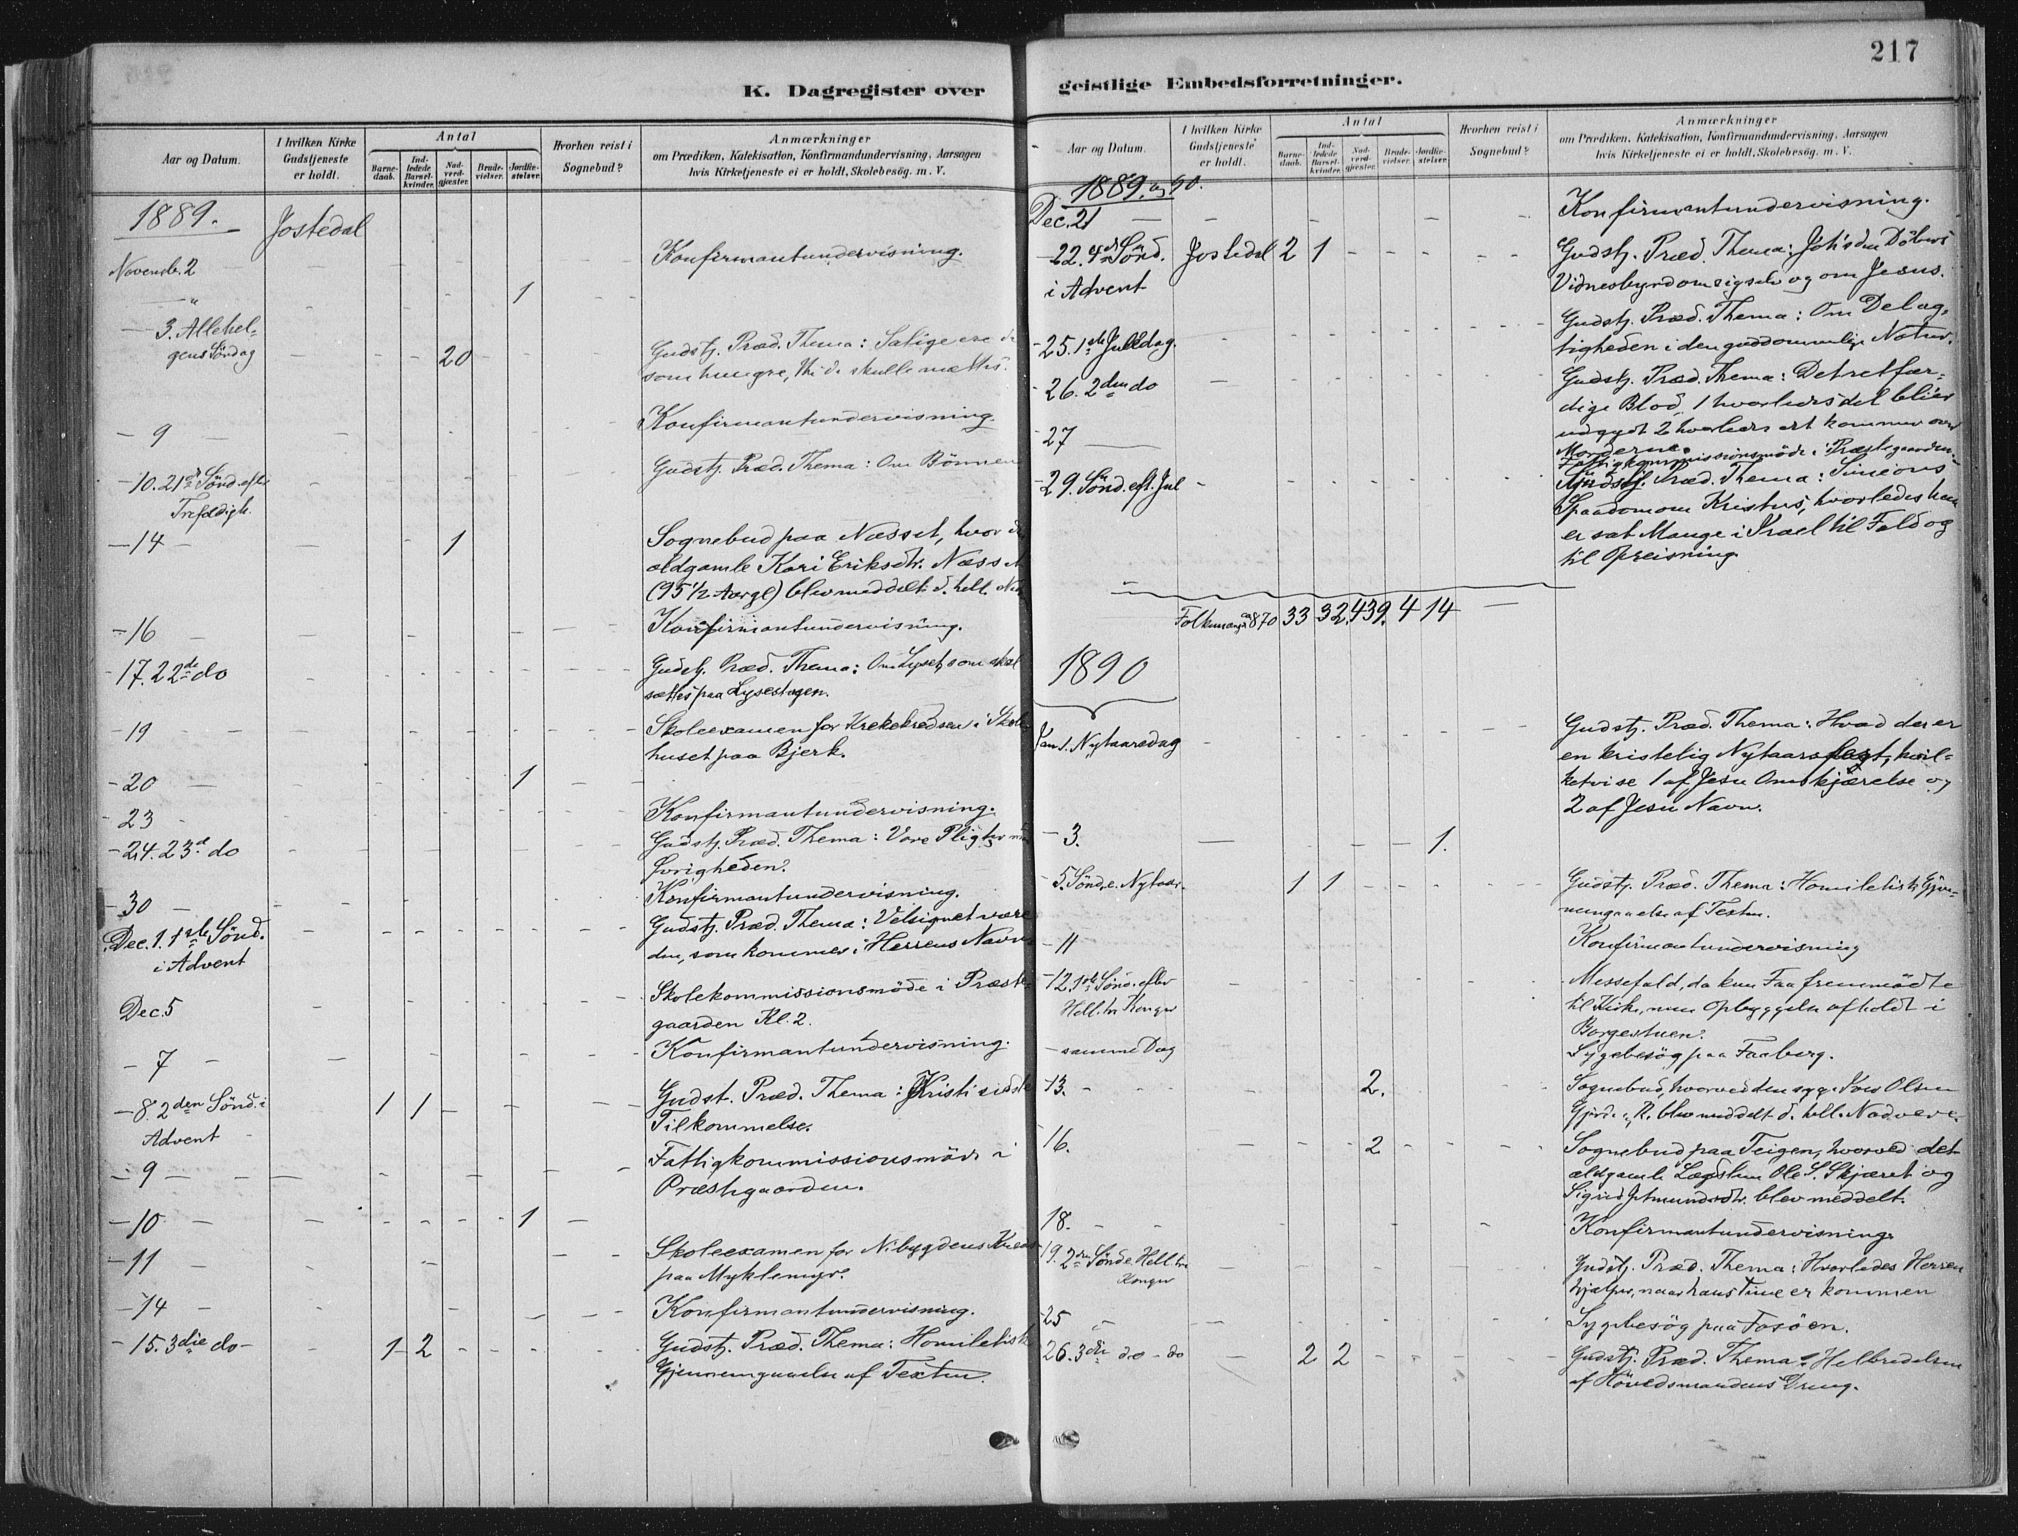 217
K. Dagregister over geistlige Embedsforretninger.
Aar og Datum.
I hvilken Kirke Gudstjeneste er holdt.
Antal
Barnedaab.
Indledede Barselkvinder.
Nadverdgjæster.
Brudevielser.
Jordfæstelser.
Hvorhen reist i Sognebud?
Anmærkninger
om Prædiken, Katekisation, Konfirmandundervisning, Aarsagen
hvis Kirketjeneste ei er holdt, Skolebesøg. m. V.
1889. Jostedal
Novembr. 2 Konfirmantundervisning.
" 1
3. Allehel-
gens Söndag 20 Gudstj. Præd. Thema: Salige ere de
som hungre, thi de skulle mættes.
9 Konfirmantundervisning.
10. 21de Sönd. eft. Gudstj. Præd. Thema: Om Bönnen
Trefoldigh.
14 1 Sognebud paa Næsset, hvor d
oldgamle Kari Eriksdtr. Næss
(95 1/2 Aar gl) blev meddelt d. hell. N
16 Konfirmantundervisning.
17. 22de do Gudstj. Præd. Thema: Om Lyset, som skal
sættes paa Lysestagen.
19 Skoleexamen for Krekekredsen i Skole
huset paa Bjerk.
20 1
23 Konfirmantundervisning.
24. 23de do Gudstj. Præd. Thema: Vore Pligter mo
Øvrigheden.
30 Konfirmantundervisning.
Dec. 1. 1ste Sönd. Gudstj. Præd. Thema: Velsignet være
i Advent den, som kommer i Herrens Navn
Dec. 5 Skolekommissionsmöde i Præste
gaarden Kl. 2.
7 Konfirmantundervisning.
8. 2den Sönd. i 1 1 Gudst. Præd. Thema: Kristi sidste
Advent Tilkommelse.
9 Fattigkommissionsmöde i
Præstegaarden.
10 1
11 Skoleexamen for Nibygdens Kreds
paa Myklemyr.
14 Konfirmantundervisning.
15. 3die do 1 2 Gudstj. Præd. Thema: Homiletisk
Gjennemgaaelse af Texten.
Aar og Datum.
I hvilken Kirke Gudstjeneste er holdt.
Antal
Barnedaab.
Indledede Barselkvinder.
Nadverdgjæster.
Brudevielser.
Jordfæstelser.
Hvorhen reist i Sognebud?
Anmærkninger
om Prædiken, Katekisation, Konfirmandundervisning, Aarsagen
hvis Kirketjeneste ei er holdt, Skolebesøg. m. V.
1889. og 90.
Dec. 21 Konfirmantundervisning.
22. 4de Sönd. Jostedal 2 1 Gudstj. Præd. Thema: Johs den Döbers
i Advent Vidnesbyrd om sig selv og om Jesus.
25. 1ste Juledag. Gudstj. Præd. Thema: Om Delag-
tigheden i den guddommelige Natur.
26. 2den do Gudstj. Præd. Thema: Det retfær-
dige Blod, 1 hvorledes det bliver
udgydt 2 hvorledes det kommer over
Morderne.
27 Fattigkommissionsmöde i Præstegaarden.
29. Sönd. eft. Jul Gudstj. Præd. Thema: Simeons
Spaadom om Kristus, hvorledes han
er sat Mange i Israel til Fald og
til Opreisning.
Folkemængd ca 870 33 32 439. 4 14
1890
Jan 1. Nytaarsdag Gudstj. Præd. Thema: Hvad der er
en kristelig Nytaarsfest, hvil-
ket vise 1 af Jesu Omskjærelse og
2 af Jesu Navn.
3. 1.
5. Sönd. e. Nytaar. 1 1 Gudstj. Præd. Thema: Homiletisk Gjen-
nemgaaelse af Texten.
11 Konfirmantundervisning
12. 1ste Sönd. efter Messefald, da kun Faa fremmödte
Hell. tre Konger til Kirke, men Opbyggelse afholdt i
Borgestuen.
samme Dag Sygebesög paa Faaberg.
13. 2. Sognebud, hvorved den syge Iver Olsen
Gjerde, R. blev meddelt d. hell. Nadvere.
16. 2 Sognebud paa Teigen, hvorved det
ældgamle Lægdslem Ole S. Skjæret og
Sigrid Jetmundsdtr. blev meddelt.
18. Konfirmantundervisning.
19. 2den Sönd e Hell. tre Gudstj. Præd. Thema: Hvorledes Herren
Konger hjælper, naar hans Time er kommen
25 Sygebesög paa Fosöen.
26. 3die do - do 2 2 Gudstj. Præd. Thema: Helbredelsen
af Hövedsmandens Dreng.